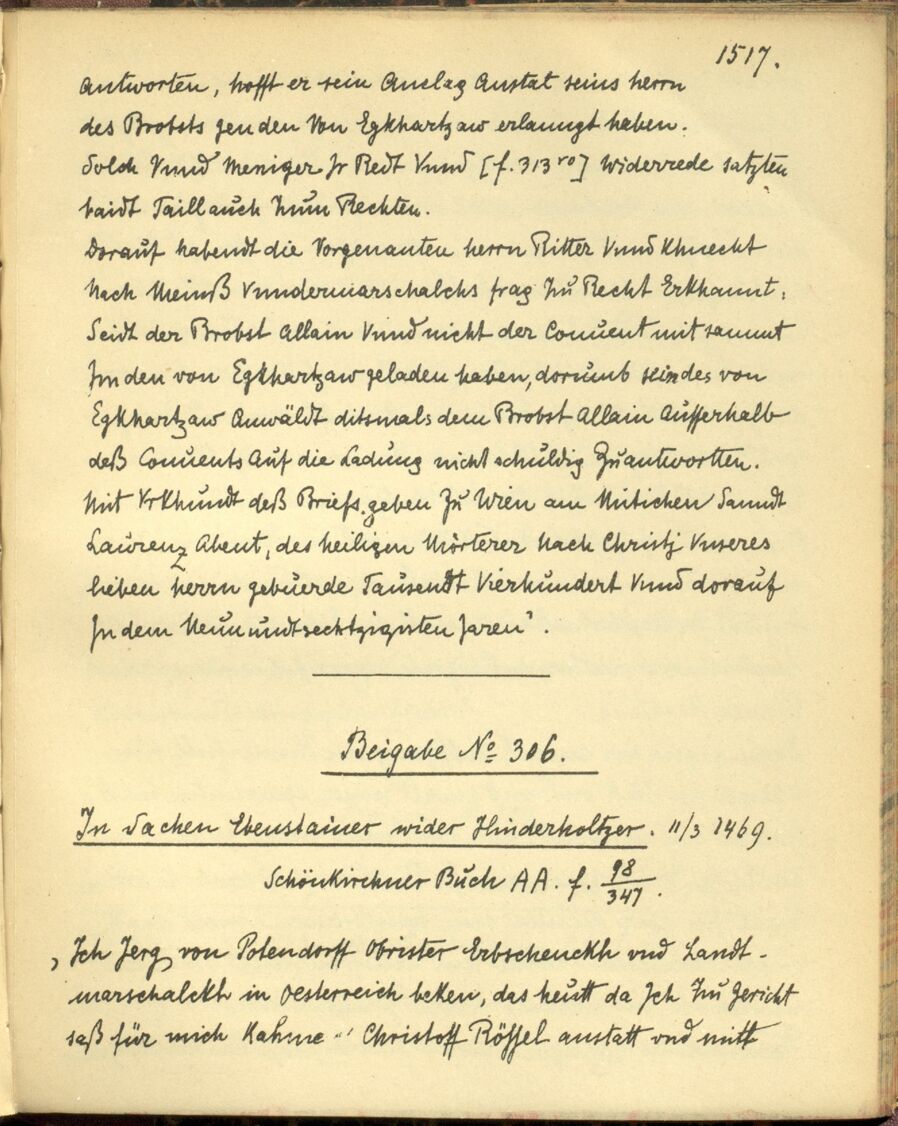 1517.
antworten, hofft er sein Anclag Anstat seins herrn
des Brobsts gen den Von Egkhartzaw erlanngt haben.
Solch Vnnd Meniger Jr Redt Vnnd [f. 313 ro] widerrede satzten
baidt Taill auch Zum Rechten.
Dorauf habendt die Vorgenanten herrn Ritter Vnnd Khnecht
Nach Meinß Vnndermarschalchs frag Zu Recht Erkhannt:
Seidt der Brobst Allain Vnnd nicht der Conuent mit sammt
Jm den von Egkhartzaw geladen haben, dorumb sein des von
Egkhartzaw Anwäldt ditsmals dem Brobst Allain Ausserhalb
deß Conuents Auf die Ladung nicht schuldig Zu antwortten.
Mit Vrkhundt deß Briefs, geben Zu Wien am Mitichen Sanndt
Laurenz Abent, des heiligen Mörterer Nach Christj Vnseres
lieben herrn gebuerde Tausendt Vierhundert Vnnd dorauf
Jn dem Neun undt sechtzigisten Jaren".
Beigabe No 306.
In Sachen Ebenstainer wider Hinderholtzer. 11/3 1469.
Schönkirchner Buch AA. f. 98/347.
„Ich Jerg von Potendorff Obrister Erbschenckh vnd Landt-
marschalckh in Oesterreich beken, das heutt da Ich Zu Gericht
saß für mich Kahme " Christoff Rössel anstatt vnd mitt